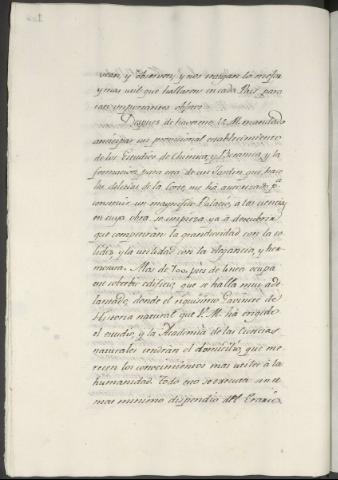 vean, y observen, y nos traigan lo mejor
y mas util que hallaren en cada Pais para
tan importantes objetos.
Despues de haverme V. M. mandado
anticipar un provisional establecimiento
de los Estudios de Chimica, y Botanica, y la
formacion para esta de un Jardin que hace
las delicias de la Corte, me há autorizado pa
construir un magnifico Palacio, a las ciencias
en cuya obra se empieza ya á descubrir
que competirán la grandiosidad con la so
lidez y la utilidad con la elegancia, y her
mosura. Mas de 700 pies de linea ocupa
este soberbio edificio, que se halla muy ade
lantado, donde el riquisimo Gavinete de
Historia natural que V. M. há erigido
el estudio, y la Academia de las Ciencias
naturales tendrán el domicilio, que me
recen los conocimientos mas utiles á la
humanidad. Todo esto se executa sin el
mas minimo dispendio del Erario